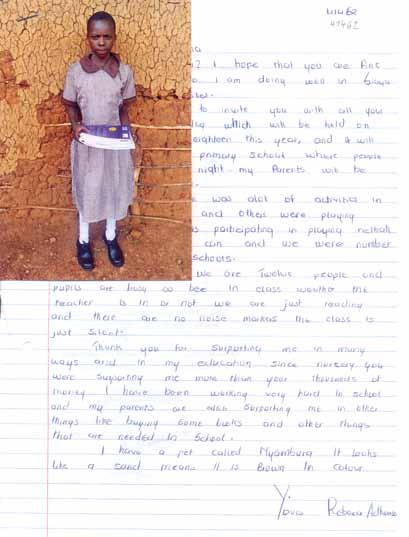 41462
41462
ia
? I hope that you are fine
I am doing well in
to invite you with all your
which will be held on
eighteen this year, and it will
primary school where people
night my Parents will be
was alot of activities in
and others were playing
participating in playing netball
can and we were number
schools.
We are Twelve people and
pupils are busy as bee in class weather the
teacher is in or not we are just reading
and there are no noise makers the class is
just silent.
Thank you for supporting me in many
ways and in my education since nursery you
were supporting me more than your thousands of
money I have been working very hard in school
and my parents are also supporting me in other
things like buying some books and other things
that are needed in school.
I have a pet called Nyambura It looks
like a sand means it is Brown In colour.
Yours Rebecca